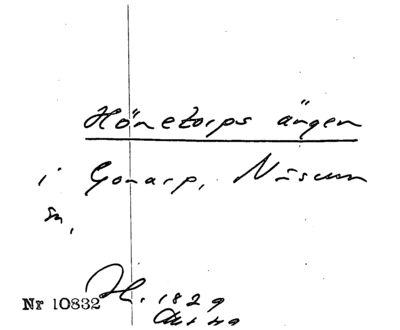 Hönetorps ängen
i Gonarp, Näsum
sn,
H. 1829
Nr 10832